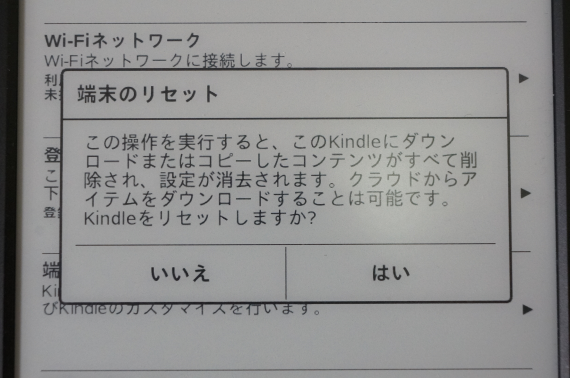 Wi-Fiネットワーク
Wi-Fiネットワークに接続します。
利
未
端末のリセット
この操作を実行すると、このKindleにダウン
ロードまたはコピーしたコンテンツがすべて削
除され、設定が消去されます。クラウドからア
イテムをダウンロードすることは可能です。
Kindleをリセットしますか?
登
こ
下
登
いいえ
はい
端
Ki
びKindleのカスタマイズを行います。